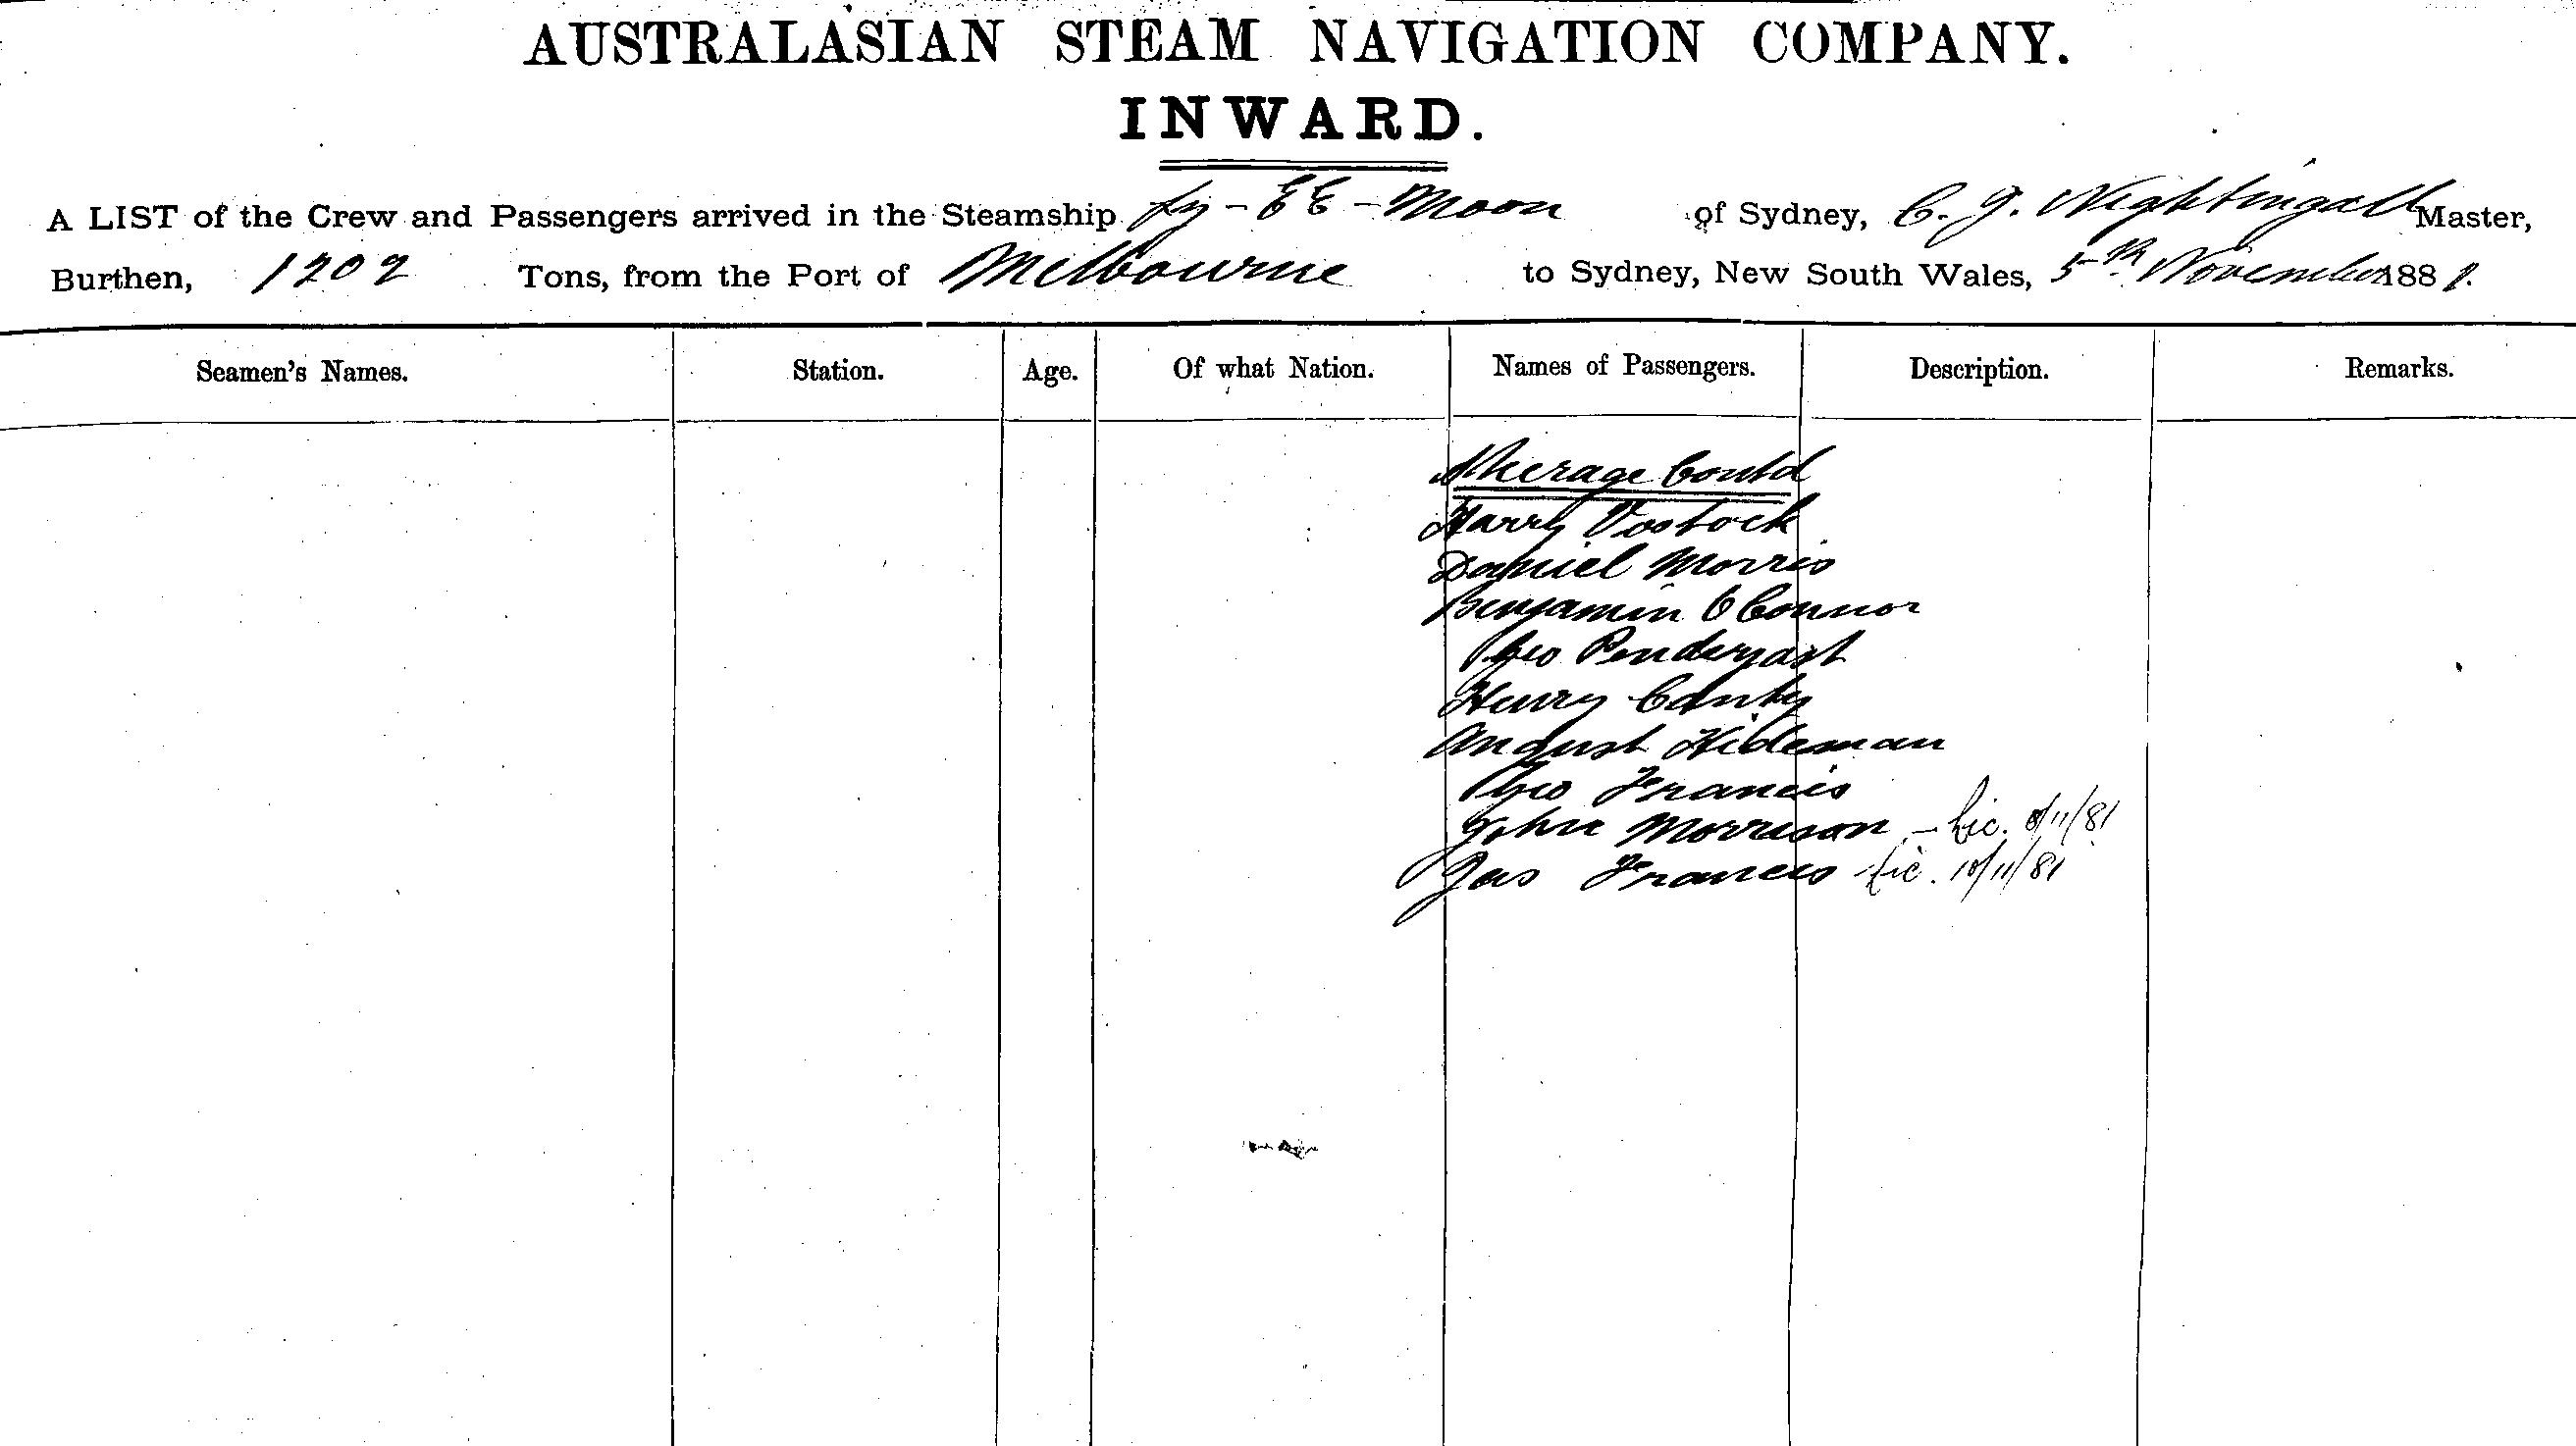 AUSTRALASIAN STEAM NAVIGATION COMPANY.
INWARD.
A LIST of the Crew and Passengers arrived in the Steamship Ly-EE-Moon of Sydney, C. J. Nightingall Master,
Burthen, 1202 Tons, from the Port of Melbourne to Sydney, New South Wales, 5th November 1881.
Seamen's Names. Station. Age. Of what Nation. Names of Passengers. Description. Remarks.
Steerage Contd
Harry Vostock
Daniel Morris
Benjamin O Connor
Geo Pendergast
Henry Canty
August Hideman
Geo Francis
John Morrison 11/81
Jas Francis 10/11/81